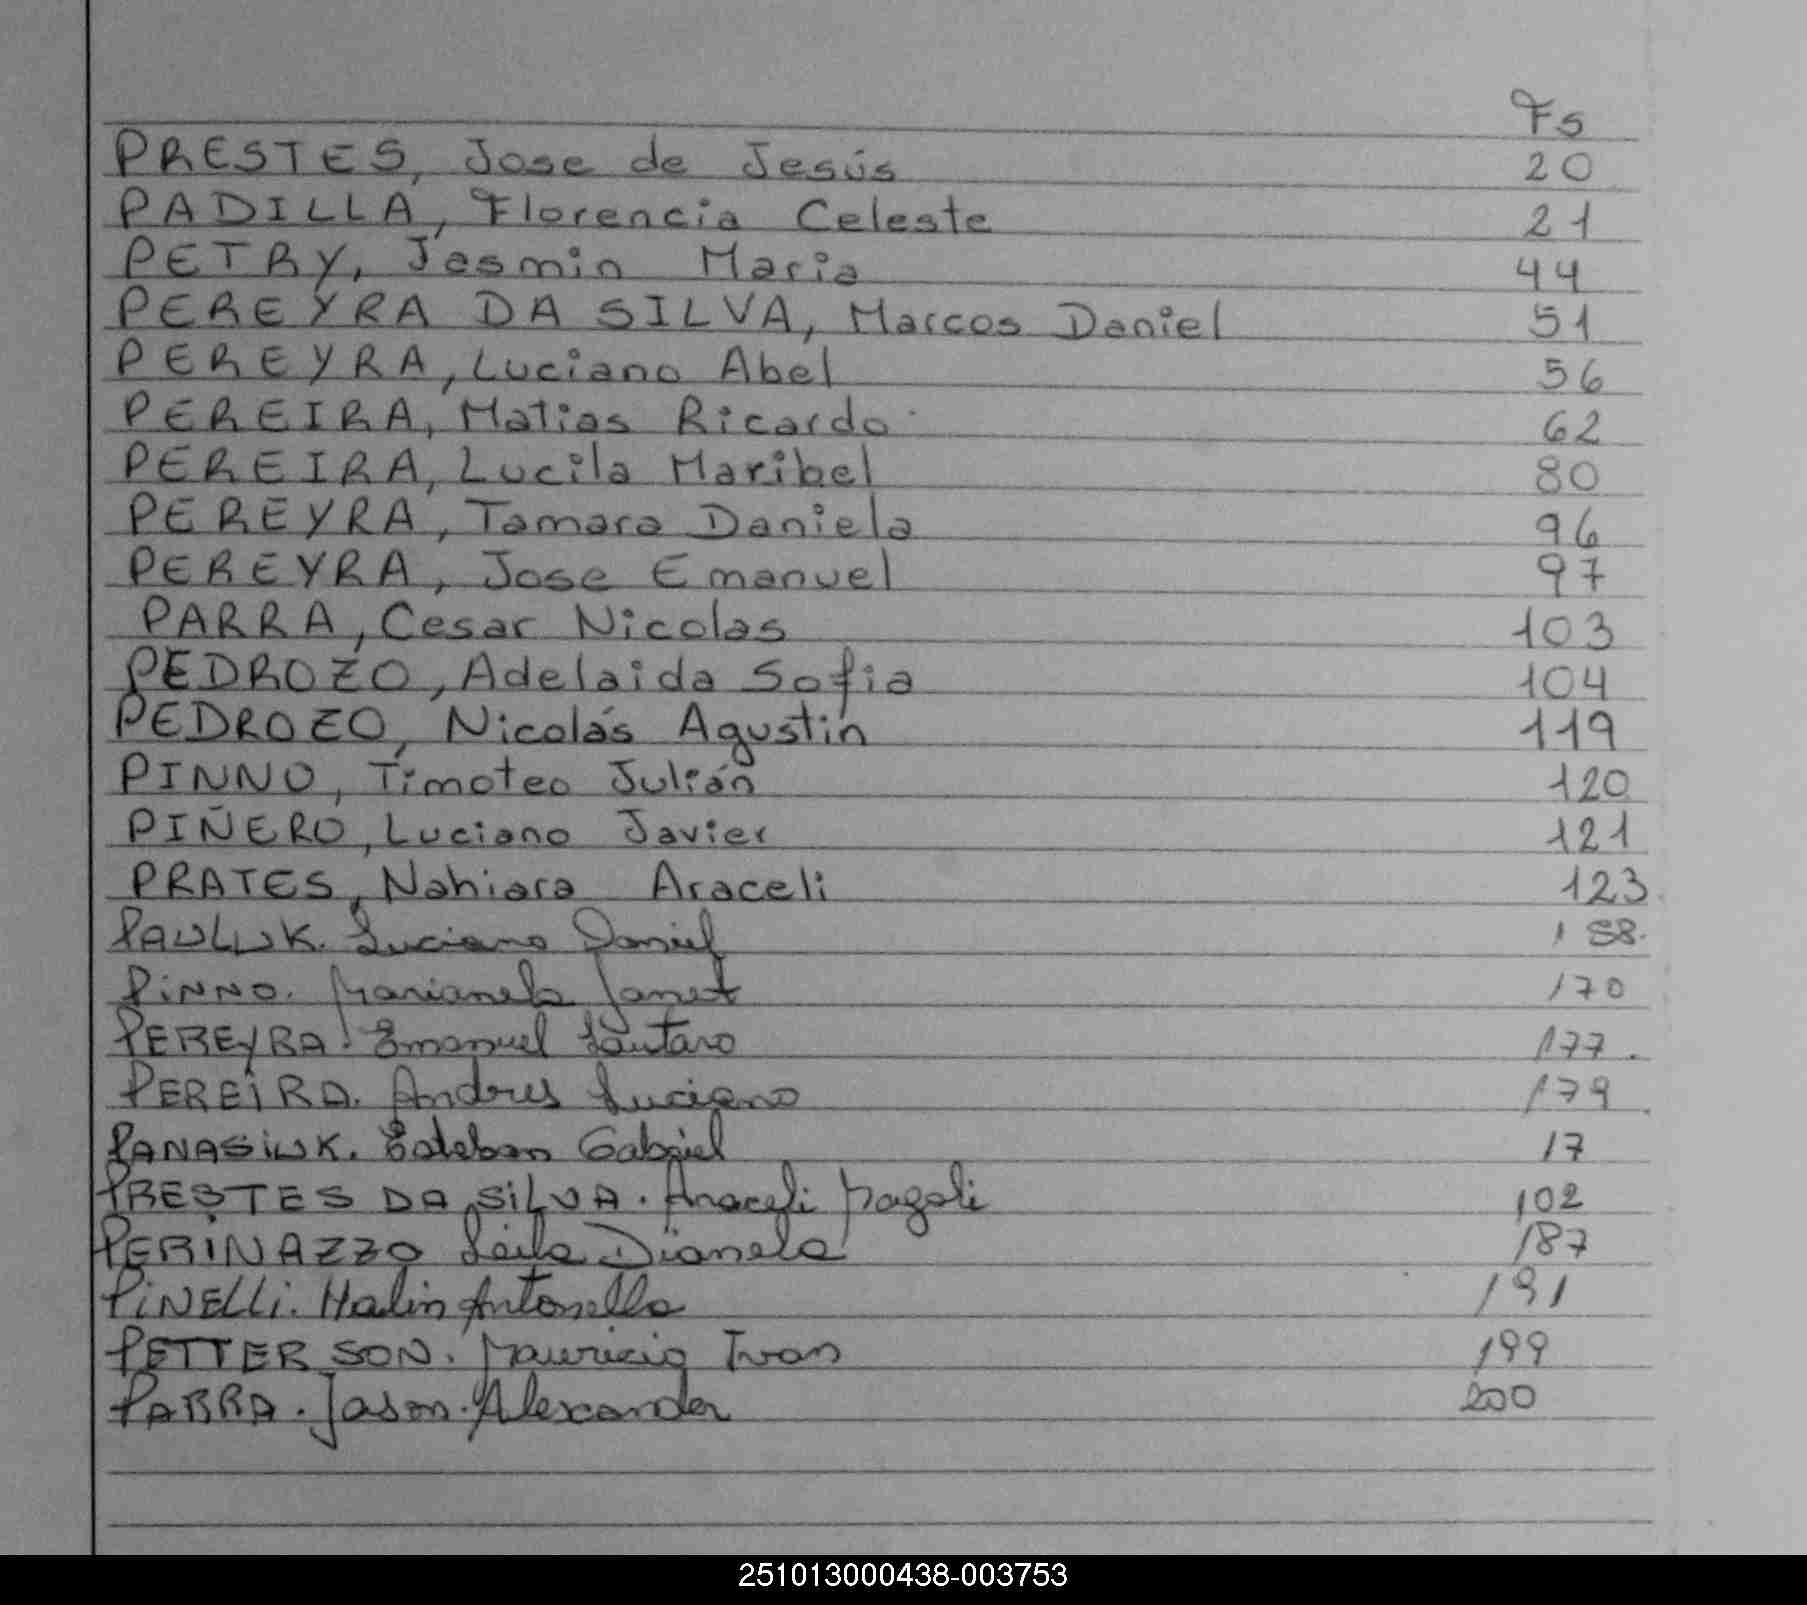 Fs
PRESTES, Jose de Jesús 20
PADILLA, Florencia Celeste 21
PETRY, Jesmin Maria 44
PEREYRA DA SILVA, Marcos Daniel 51
PEREYRA, Luciano Abel 56
PEREIRA, Matias Ricardo 62
PEREIRA, Lucila Maribel 80
PEREYRA, Tamara Daniela 96
PEREYRA, Jose Emanuel 97
PARRA, Cesar Nicolas 103
PEDROZO, Adelaida Sofia 104
PEDROZO, Nicolás Agustín 119
PINNO, Timoteo Julián 120
PIÑERO, Luciano Javier 121
PRATES, Nahiara Araceli 123
PAULUK. Luciano Daniel
PINNO. Marianela Janet 170
PEREYRA. Emanuel Lautaro 177.
PEREIRA. Andres Luciano 179.
PANASIUK. Esteban Gabriel 17
PRESTES DA SILVA. Araceli Magali 102
PERINAZZO Leila Dianela 187
PINELLI. Halin Antonella 191
PETTERSON. Mauricio Ivan 199
PARRA. Jason. Alexander 200
251013000438-003753